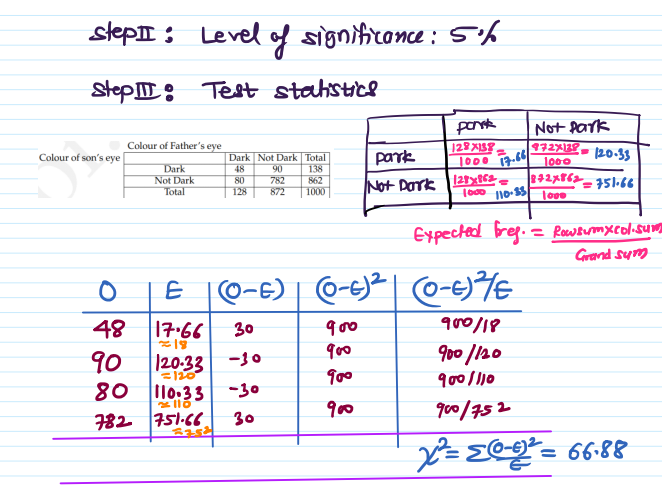 Step II : Level of significance : 5%
Step III : Test statistics
Colour of Father's eye
Colour of son's eye Dark Not Dark Total
Dark 48 90 138
Not Dark 80 782 862
Total 128 872 1000
Dark Not Dark
Dark 128×138/1000 = 17.66 872×138/1000 = 120.33
Not Dark 128×862/1000 = 110.33 872×862/1000 = 751.66
Expected freq. = Rowsum×col.sum/Grand sum
O E (O-E) (O-E)² (O-E)²/E
48 17.66 30 900 900/18
≈18
90 120.33 -30 900 900/120
≈120
80 110.33 -30 900 900/110
≈110
782 751.66 30 900 900/752
≈752
χ² = Σ(O-E)²/E = 66.88